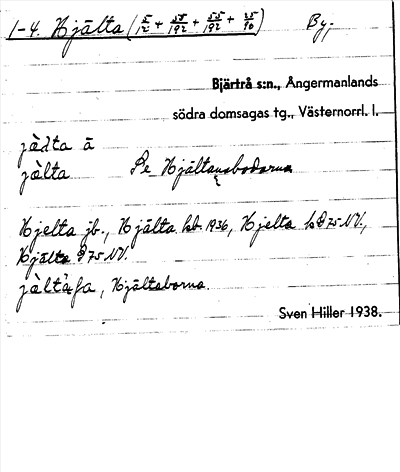 1-4. Hjälta (5/12 + 55/192 + 55/192 + 25/90) By,
Bjärtrå s:n., Ångermanlands
södra domsagas tg., Västernorrl. l.
jälta Se Hjältanabodarna
Hjelta jb., Hjälta kb. 1936, Hjelta
Hjälta 75 NV.
Hjältaborna.
Sven Hiller 1938.